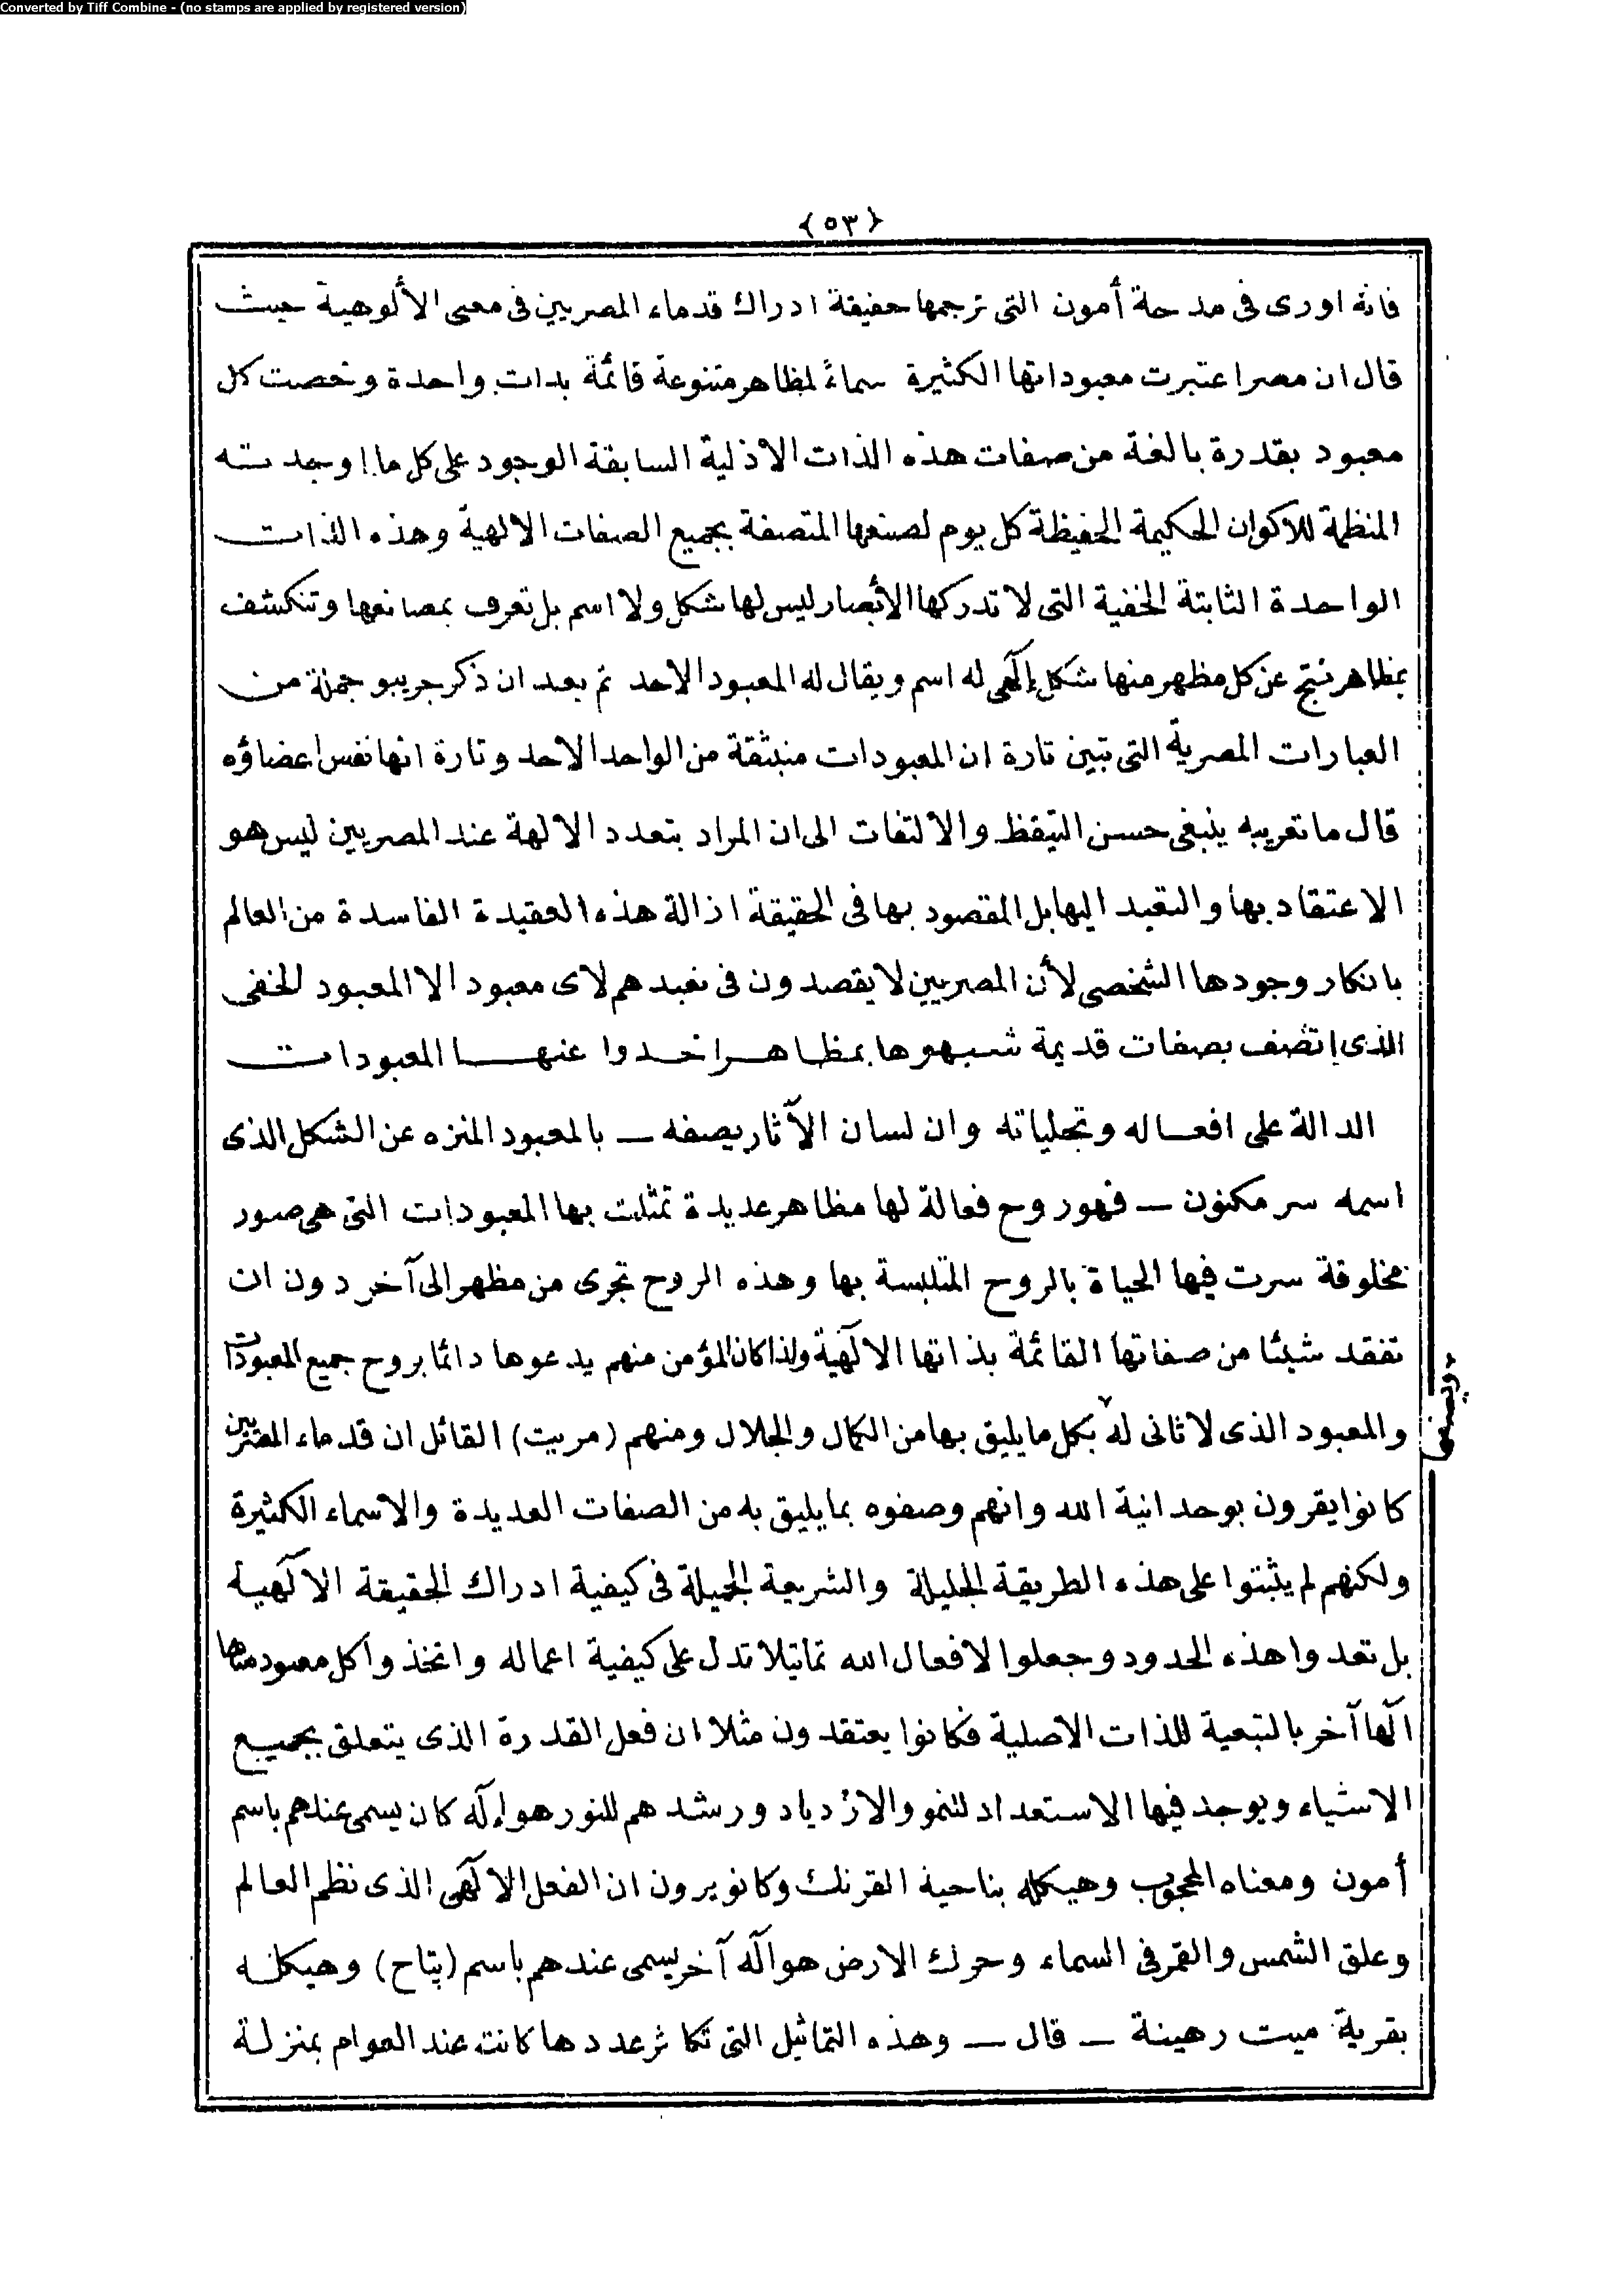 Converted by Tiff Combine - (no stamps are applied by registered version)
﴿٥٣﴾
فانه اورى فى مدحة أمون التى ترجمها حقيقة ادراك قدماء المصريين فى معنى الألوهية حيث
قال ان مصر اعتبرت معبوداتها الكثيرة سماءً لمظاهر متنوعة قائمة بذات واحدة وخصت كل
معبود بقدرة بالغة من صفات هذه الذات الازلية السابقة الوجود على كل ما اوجدته
المنظمة للاكوان الحكيمة الحفيظة كل يوم لصنعها المتصفة بجميع الصفات الالهية وهذه الذات
الواحدة الثابتة الخفية التى لا تدركها الأبصار ليس لها شكل ولا اسم بل تعرف بمصانعها وتنكشف
بمظاهر نتج عن كل مظهر منها شكل إلٓهى له اسم ويقال له المعبود الاحد ثم بعد ان ذكر جريبو جملة من
العبارات المصرية التى تبين تارة ان المعبودات منبثقة من الواحد الاحد وتارة انها نفس اعضاؤه
قال ما تعريبه ينبغى حسن التيقظ والالتفات الى ان المراد بتعدد الالهة عند المصريين ليس هو
الاعتقاد بها والتعبد اليها بل المقصود بها فى الحقيقة ازالة هذه العقيدة الفاسدة من العالم
بانكار وجودها الشخصى لأن المصريين لا يقصدون فى تعبدهم لاى معبود الا المعبود الخفى
الذى إتصف بصفات قديمة شبهوها بمظاهر اتخذوا عنها المعبودات
الدالة على افعاله وتجلياته وان لسان الآثار يصفه ــ بالمعبود المنزه عن الشكل الذى
اسمه سر مكنون ــ فهو روح فعالة لها مظاهر عديدة تمثلت بها المعبودات التى هى صور
مخلوقة سرت فيها الحياة بالروح المتلبسة بها وهذه الروح تجرى من مظهر الى آخر دون ان
تفقد شيئا من صفاتها القائمة بذاتها الالٓهية ولذا كان المؤمن منهم يدعوها دائما بروح جميع المعبودات
والمعبود الذى لا ثانى له ٧ بكل ما يليق بها من الكمال والجلال ومنهم (مريت) القائل ان قدماء المصريين
٧ ويصفها
كانوا يقرون بوحدانية الله وانهم وصفوه بما يليق به من الصفات العديدة والاسماء الكثيرة
ولكنهم لم يثبتوا على هذه الطريقة الجليلة والشريعة الجميلة فى كيفية ادراك الحقيقة الالٓهية
بل تعدوا هذه الحدود وجعلوا لافعال الله تماثيلا تدل على كيفية اعماله واتخذوا كل معبود منها
الٓها آخر بالتبعية للذات الاصلية فكانوا يعتقدون مثلا ان فعل القدرة الذى يتعلق بجميع
الاشياء ويوجد فيها الاستعداد للنمو والازدياد ورشدهم للنور هو إلٓه كان يسمى عندهم باسم
أمون ومعناه المحجوب وهيكله بناحية القرنك وكانو يرون ان الفعل الالٓهى الذى نظم العالم
وعلق الشمس والقمر فى السماء وحرك الارض هو الٓه آخر يسمى عندهم باسم (پتاح) وهيكله
بقرية ميت رهينة ــ قال ــ وهذه التماثيل التى تكاثر عددها كانت عند العوام بمنزلة